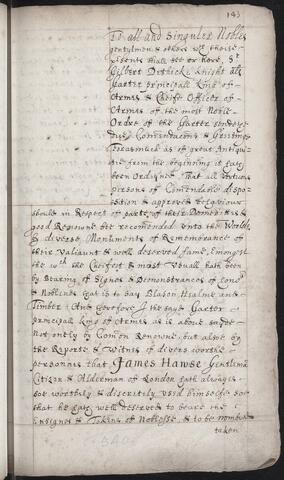 143
To all and Singuler Nobles
gentylmen & others wch theise
presents shall see or here, Sr
Gilbert Dethicke knight als
Garter principall king of
Armes & Cheife Officer of
Armes of the most Noble
Order of the Garter sendeth
due Comendacons & Greeting
Forasmuch as of great Antiqui-
tie from the beginning it hath
been Ordeyned That all vertuous
persons of Comendable dispo-
sition & approved behaviour
should in Respect of parte of their Demerits &
good Renowne be recomended vnto the World
by diverse Monuments of Remembrance of
their Valiaunt & well deserved fame, Emongst
the wch the Cheifest & most vsuall hath been
by Bearing of Signes & Demonstrances of
& Noblenes that is to say Blason Healme and
Timber: And therefore I the sayd Garter
principall king of Armes as is above sayde
Not onely by Comon Renowne but alsoe by
the Reporte & Witnes of divers worthie
personnes that James Hawse Gentleman
Citizen & Alderman of London hath alwayes
soe worthily & discreitly vsed himselfe soe
that he hath well deserved to beare the
Insignes & Tokens of Noblesse & to be nombred
taken